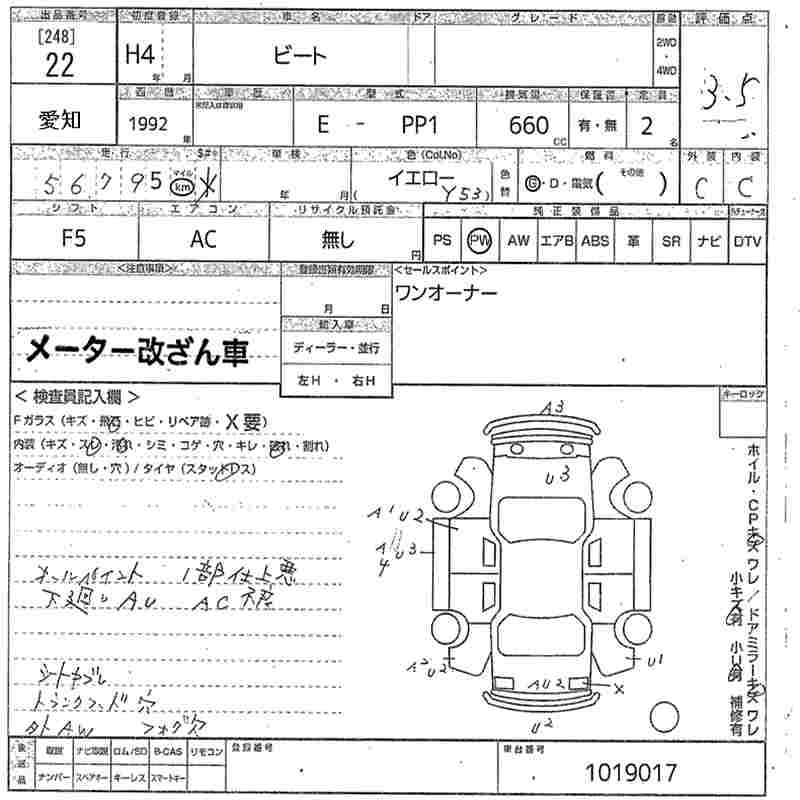 出品番号 初度登録 車名 ドア グレード 駆動 評価点
[248]
22 H4 年 月 ビート 2WD ・ 4WD 3.5
西暦 車歴 型式 排気量 保証書 定員
愛知 1992 年 E - PP1 660 CC 有・無 2 名
走行 S# 車検 色(Col,No) 燃料 外装 内装
56795 マイル km 年 月 イエロー ( Y53 ) 色替 G・D・電気( その他 ) C C
シフト エアコン リサイクル預託金 純正装備品
F5 AC 無し 円 PS PW AW エアB ABS 革 SR ナビ DTV
<注意事項> 登録出品有効期限 <セールスポイント>
月 日 ワンオーナー
輸入車
メーター改ざん車 ディーラー・並行
左H ・ 右H
< 検査員記入欄 > キーロック
Fガラス(キズ・飛石・ヒビ・リペア跡・X要)
内装(キズ・スレ・汚れ・シミ・コゲ・穴・キレ・破れ・割れ)
オーディオ(無し・穴)/タイヤ(スタッドレス)
A3
U3
A1 U2
A4 U3
オールペイント 1部仕上悪
下廻り AU AC不良
A2 U2
U1
AU2
X
U2
シートカブレ
トランクフード穴
外AW フォグ欠
ホイル・CPキズ ワレ/ドアミラーキズ ワレ
小キズ有 小U有 補修有
後送品 取説 ナビ取説 ロム/SD B-CAS リモコン 登録番号 車台番号
ナンバー スペアキー キーレス スマートキー 1019017